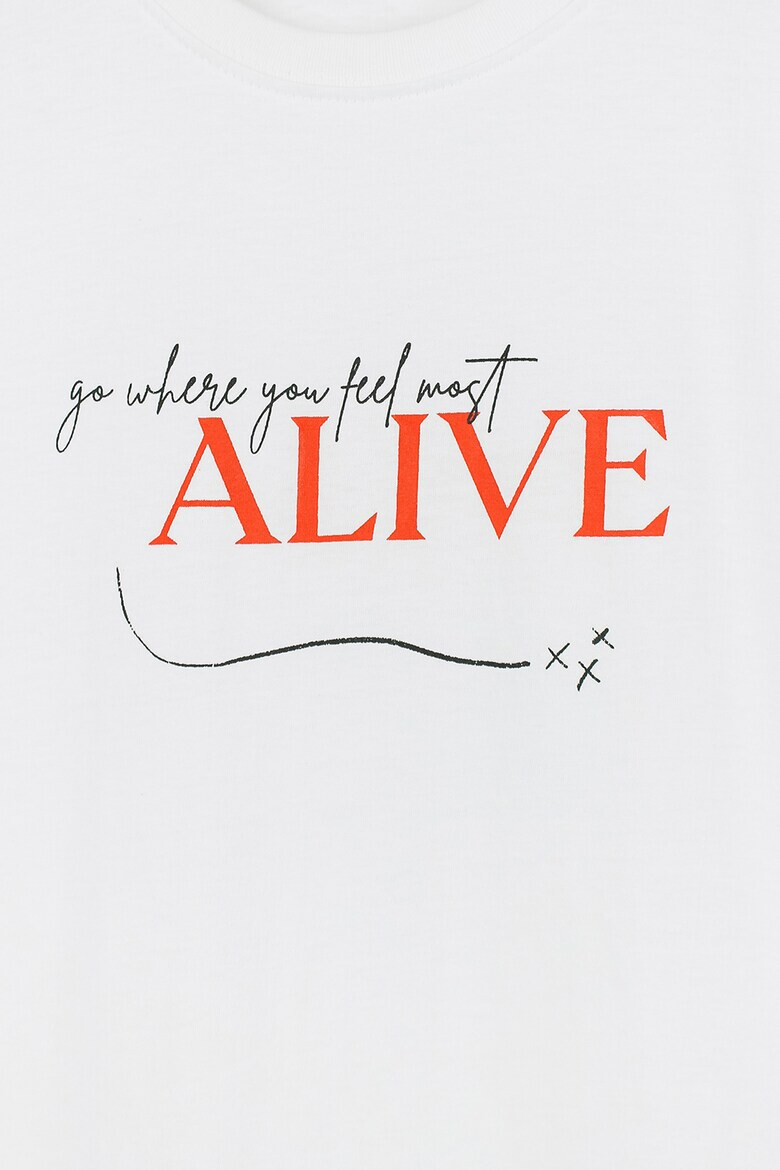 go where you feel most
ALIVE
x x x